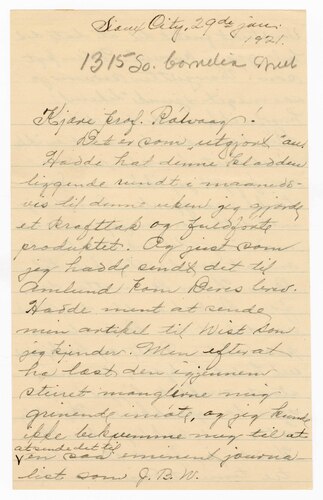 Sioux City, 29de jan.
1921.
1315 So. Cornelia
Kjære Prof. Rölvaag!
Det er som "utgjort" au
Hadde hat denne kladden
liggende rundt i maaneds-
vis til denne uken jeg gjorde
et krafttak og fuldförte
produktet. Og just som
jeg hadde sendt det til
Amlund kom Deres brev.
Hadde ment at sende
min artikel til Wist som
jeg kjender. Men efter at
ha læst den igjennem
stirret manglerne mig
grinende imöte, og jeg kunde
ikke bekvemme mig til at
at sende det til
en saa eminent journa
list som J.B.W.